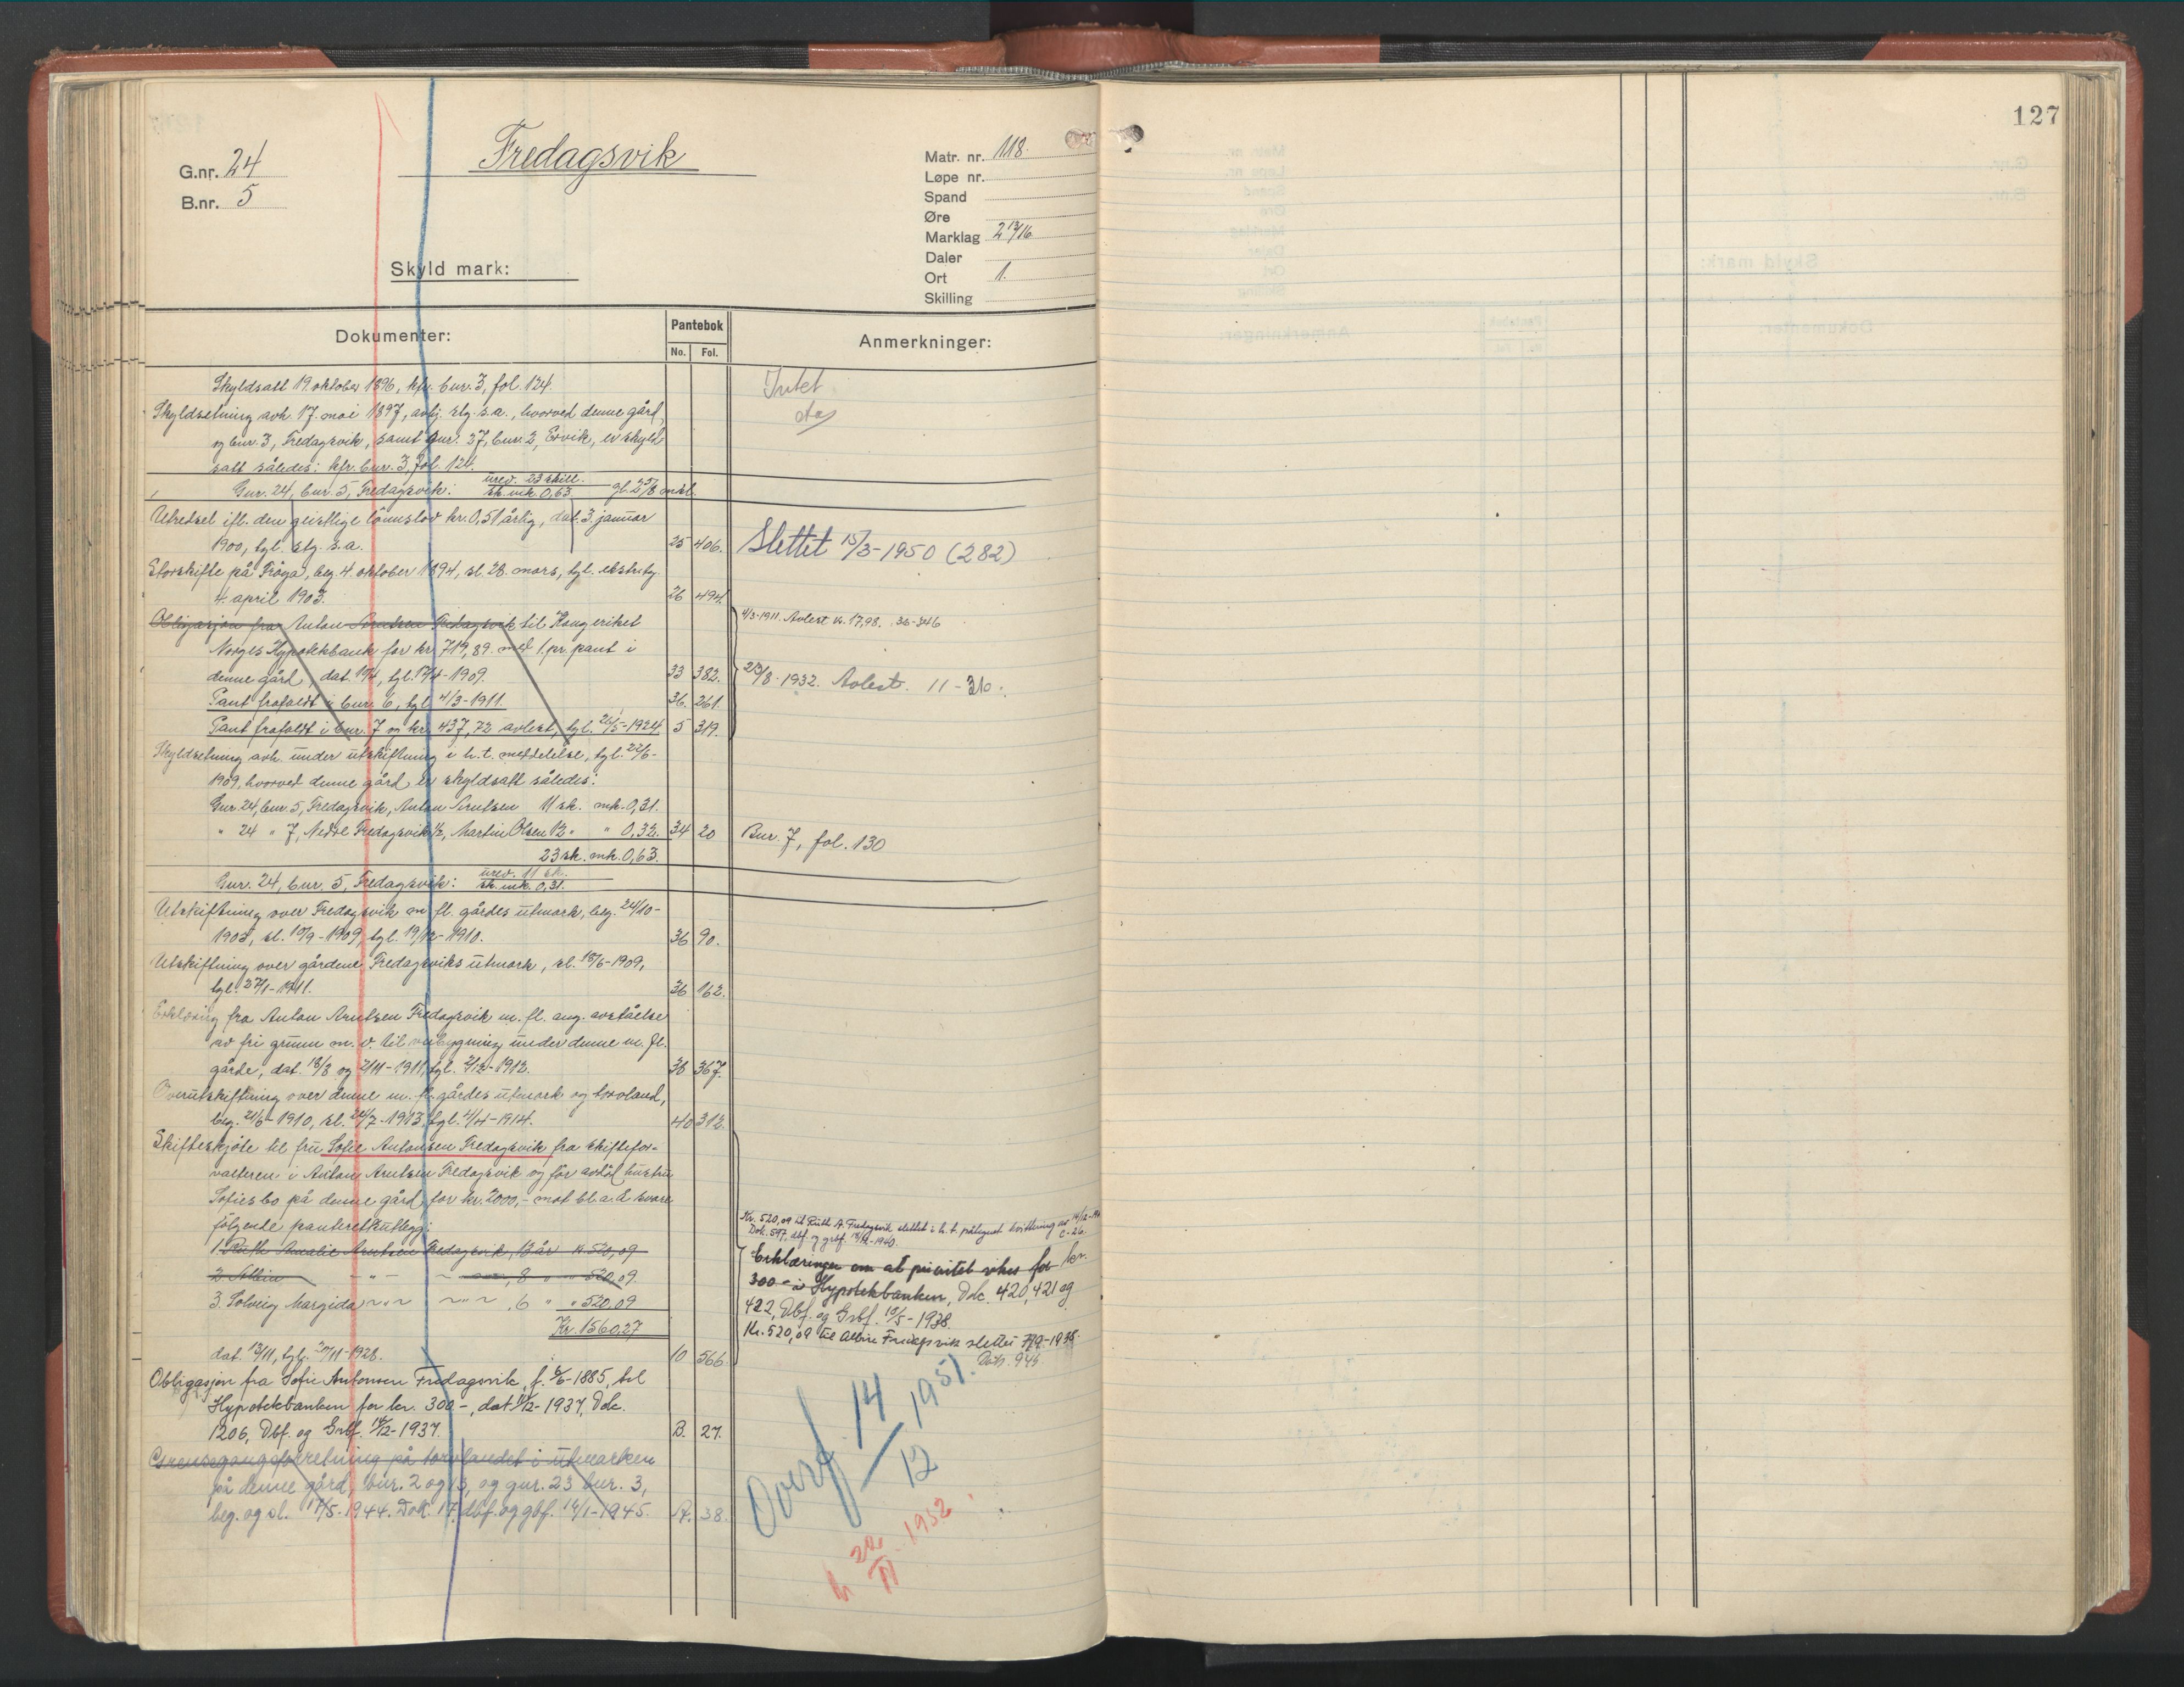 127
G.nr. 24
B.nr. 5
Fredagsvik
Matr. nr. 118.
Løpe nr.
Spand
Øre
Marklag 2 13/16
Daler
Ort 1.
Skilling
Skyld mark:
Dokumenter:
Pantebok
No. Fol.
Anmerkninger:
Skyldsatt 19. oktober 1896, kfr. bnr. 3, fol. 124.
Intet
Skyldsetning avh. 17. mai 1897, avhj. tlg. s.a., hvorved denne gård,
og bnr. 3, Fredagsvik, samt gnr. 27, bnr. 2, Ervik, er skyld
satt således: kfr. bnr. 3, fol. 124.
Gnr. 24, bnr. 5, Fredagsvik: urev. 23 skill. sk. mk. 0,63 gl. 2 5/8 mkl.
Utredsel ifl. den geistlige lönnslov kr. 0,51 årlig, dat. 3. januar
1900, tgl. s.a. 25 406.
Slettet 15/3-1950 (282)
Storskifte på Fröya, beg. 4. oktober 1894, sl. 28. mars, tgl. ekstratg.
4. april 1903. 26 494.
Obligasjon fra Anton Arntsen Fredagsvik til Kongeriket
4/3-1911. Avlest kr. 17,98. 36-346
Norges Hypotekbank for kr. 719,89 med 1. pr. pant i
denne gård, dat. 19/4, tgl. 19/4-1909. 33 382.
23/8-1932. Avlest. 11-310.
Pant frafaldt i bnr. 6, tgl. 4/3-1911. 36. 261.
Pant frafaldt i bnr. 7 og kr. 437,72 avlest, tgl. 26/5-1924. 5 319.
Skyldsetning avh. under utskiftning i h.t. meddelelse, tgl. 22/6-
1909, hvorved denne gård er skyldsatt således:
Gnr. 24, bnr. 5, Fredagsvik, Anton Arntsen 11 sk. mk. 0,31.
" 24 " 7, Nedre Fredagsvik 1/2, Martin Olsen 12 " " 0,32. 34 20
Bnr. 7, fol. 130
23 sk. mk. 0,63.
Gnr. 24, bnr. 5, Fredagsvik: urev. 11 sk. sk. mk. 0,31.
Utskiftning over Fredagsvik m. fl. gårdes utmark, beg. 24/10-
1903, sl. 10/9-1909, tgl. 19/12-1910. 36 90.
Utskiftning over gårdene Fredagsviks utmark, sl. 18/6-1909,
tgl. 27/1-1911. 36 162.
Erklæring fra Anton Arntsen Fredagsvik m. fl. ang. avståelse
av fri grunn m. v. til veibygning under denne m. fl.
gårde, dat. 18/8 og 2/11-1911, tgl. 2/2-1912. 38 367.
Overutskiftning over denne m. fl. gårdes utmark og torvland,
beg. 21/6-1910, sl. 24/7-1913, tgl. 4/4-1914. 40 312.
Skifteskjöte til fru Sofie Antonsen Fredagsvik fra skiftefor-
valteren i Anton Arntsen Fredagsvik og før avdöd hustru
Sofies bo på denne gård for kr. 2000,- mot bl.a. å svare
følgende panteretkutlegg:
1. Ruth Amalie Arntsen Fredagsvik, 13 år kr. 520,09
2. Albin " , 8 " " 520,09.
3. Solveig Margida " , 6 " " 520,09
Kr. 1560,27
dat. 13/11, tgl. 27/11-1928. 10 566.
Kr. 520,09 til Ruth A. Fredagsvik slettet i h.t. påtegnet kvittering av 14/12-40
Dok. 597, dbf. og grbf. 14/12-1940. C-26.
Erklæringer om at prioritet vikes for kr.
300- i Hypotekbanken, Dok. 420, 421 og
422, Dbf. og Grbf. 10/5-1938.
Kr. 520,09 til Albin Fredagsvik slettet 7/9-1938.
Dok. 945
Obligasjon fra Sofie Antonsen Fredagsvik, f. 5/6-1885, til
Hypotekbanken for kr. 300-, dat. 11/12-1937, Dok.
1206, Dbf. og Grbf. 14/12-1937. B. 27.
Grensegangsforretning på torvlandet i utmarken
på denne gård, bnr. 2 og 3, og gnr. 23 bnr. 3,
beg. og sl. 17/5-1944. Dok. 17 dbf. og gbf. 16/1-1945. A. 38.
Overf. 14/12 1951.
22/11-1952